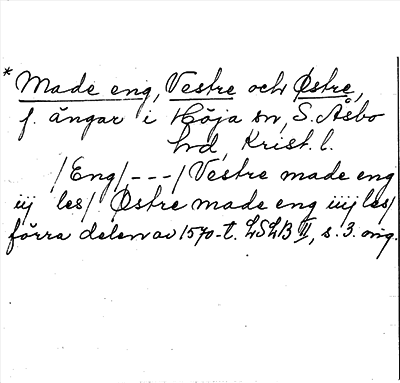 * Made eng, Vestre och Østre,
f. ängar i Höja sn, S. Åsbo
hd, Krist. l.
/Eng/---/Vestre made eng
iij les/ Østre made eng iiij les/
förra delen av 1570-t. LSLB II, s. 3. orig.